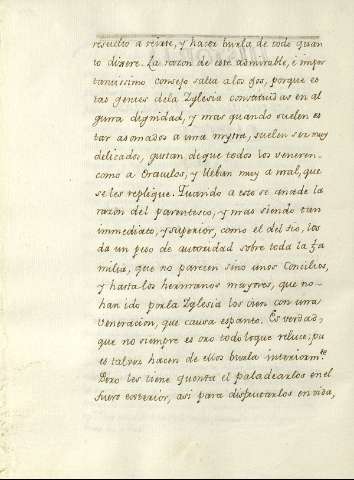 resuelto a reirte, y hacer burla de todo quan
to dixere. La razon de este admirable, è impor
tantissimo consejo salta a los ojos, porque es
tas gentes dela Yglesia constituidas en al
guna dignidad, y mas quando suelen es
tar asomados a una mytra, suelen ser muy
delicados, gustan deque todos los veneren
como a Oraculos, y lleban muy a mal, que
se les replique. Quando a esto se añade la
razon del parentesco, y mas siendo tan
immediato, y superior, como el del tio, les
da un peso de autoridad sobre toda la fa
milia, que no parecen sino unos Concilios,
y hasta los hermanos mayores, que no
han ido por la Yglesia los oien con una
veneracion, que causa espanto. Es verdad,
que no siempre es oro todo loque reluce, pu
es talvez hacen de ellos burla interiormte
Pero les tiene quenta el paladearlos en el
fuero exterior, asi para disfrutarlos en vida,